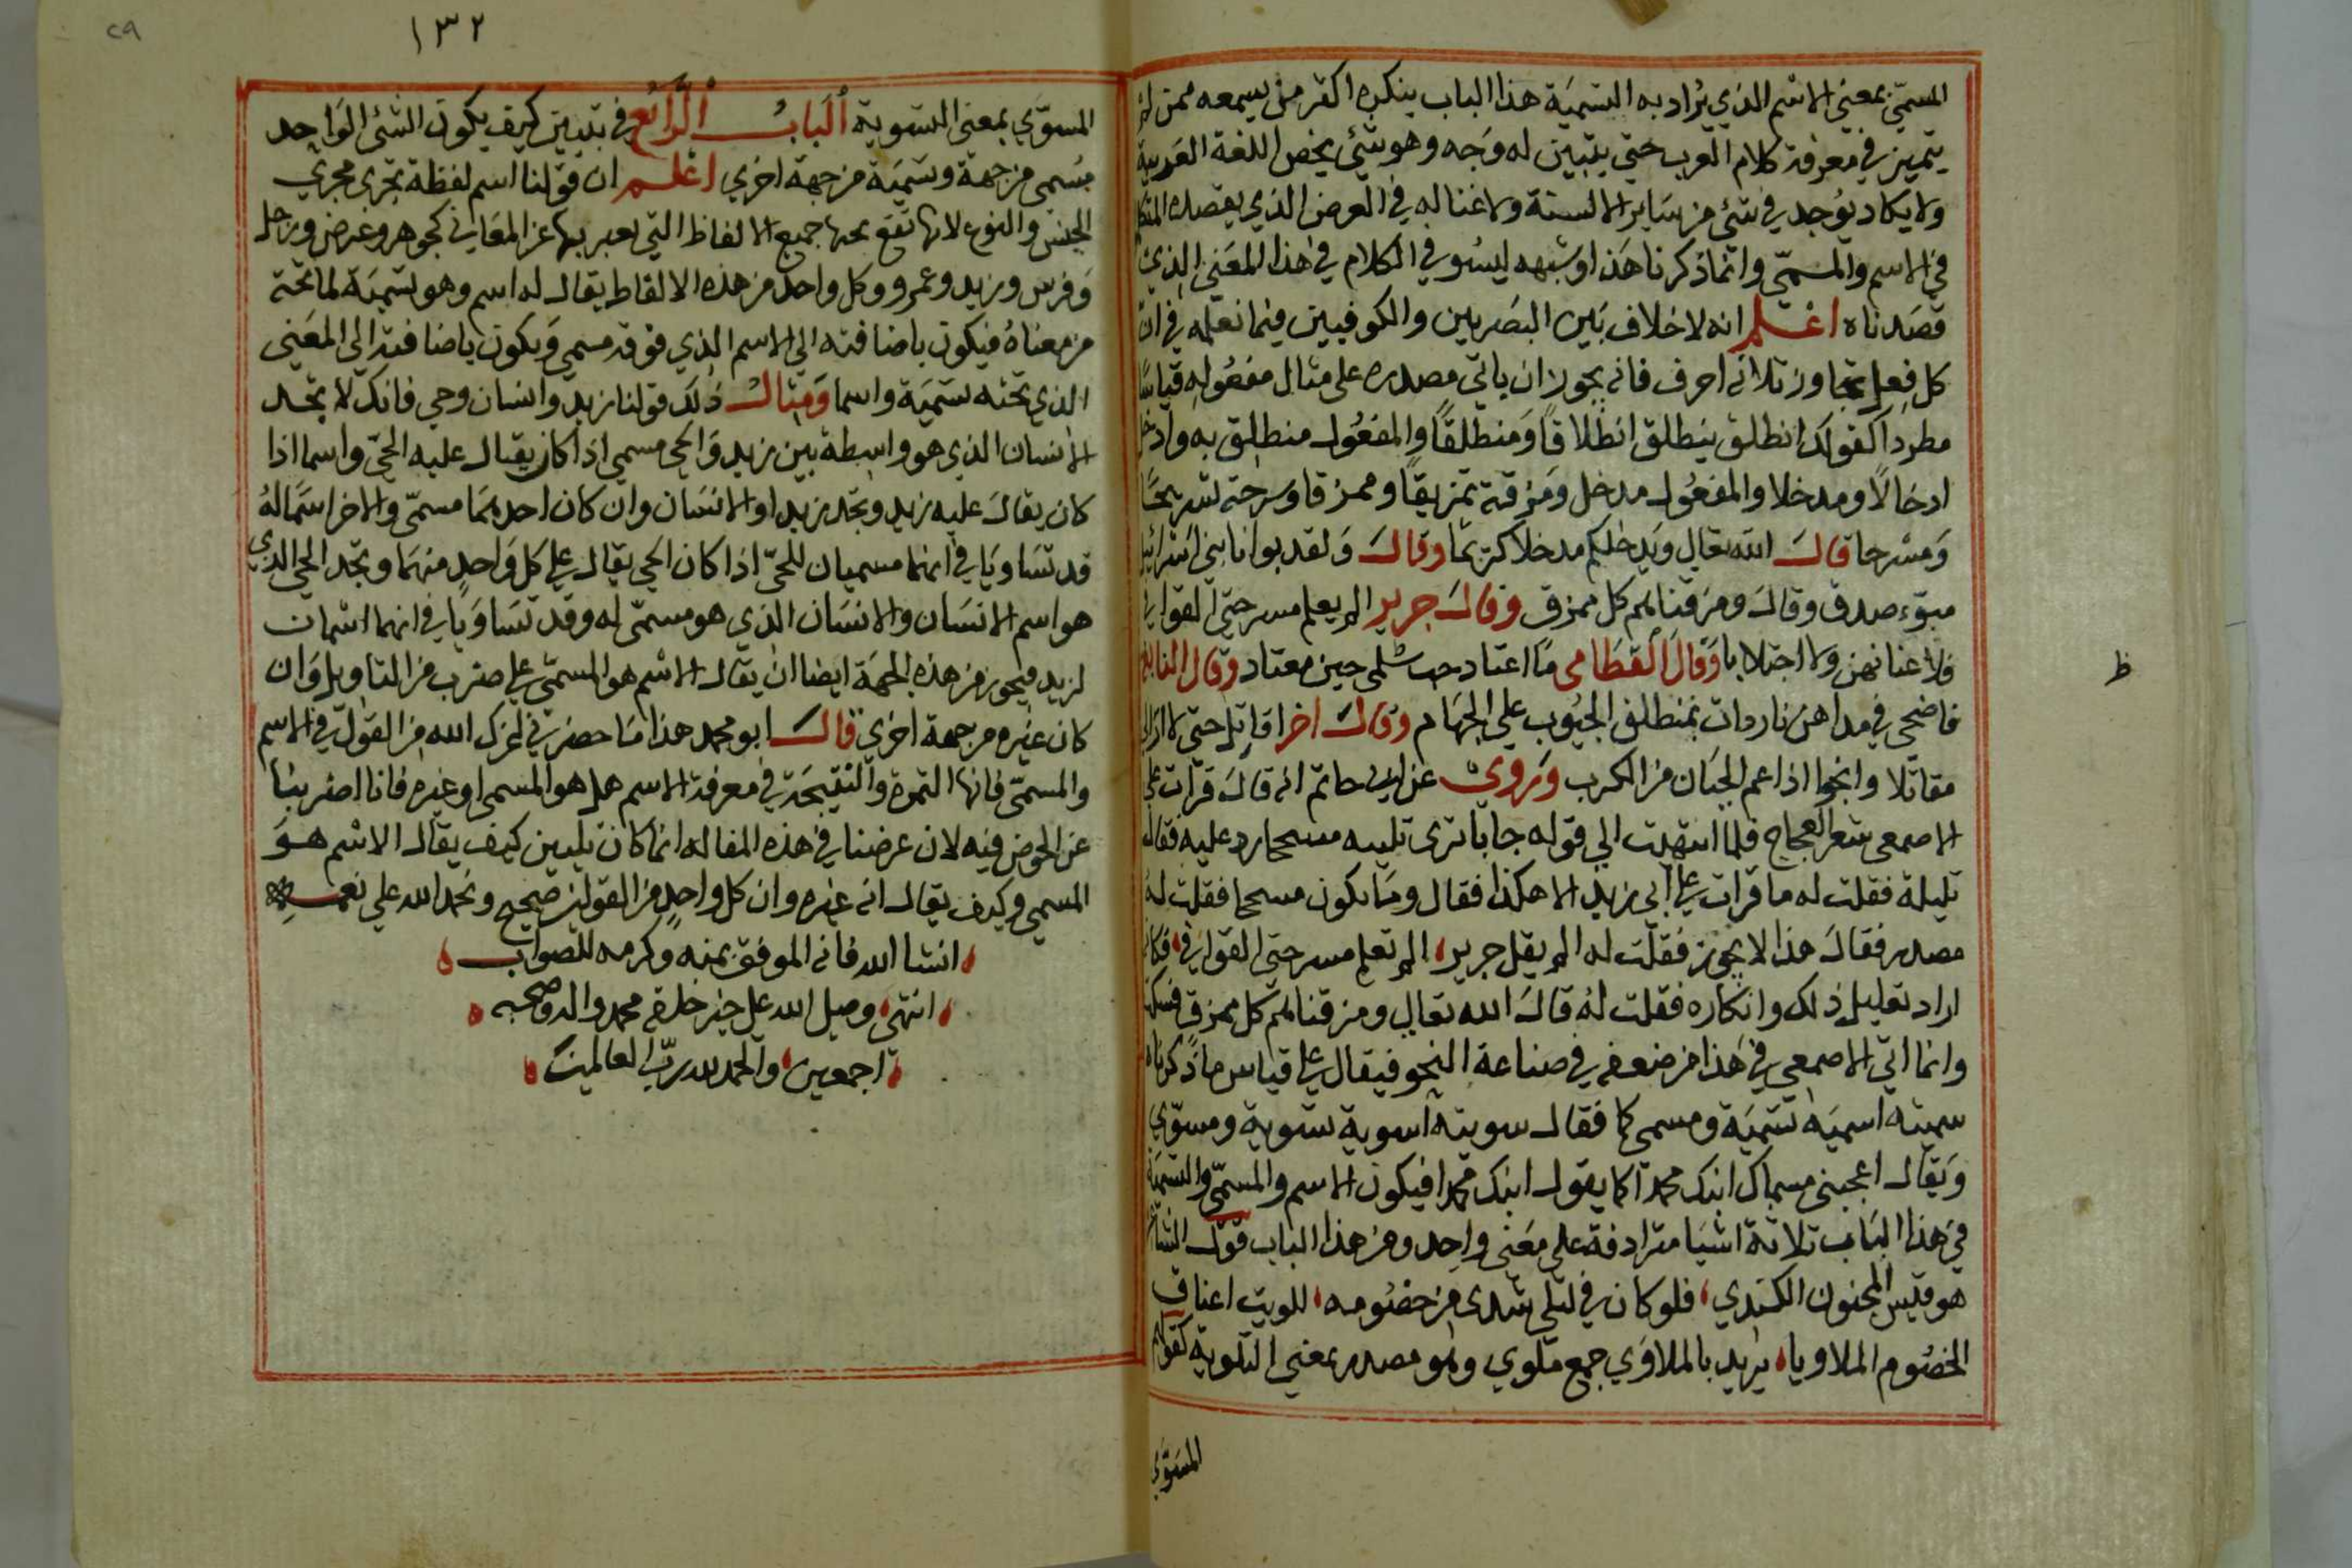 المسمى بمعنى الاسم الذي يراد به التسمية هذا الباب ينكره اكثر من يسمعه ممن لم
يتميز في معرفة كلام العرب حتى يتبين له وجه وهو شئ يخص اللغة العربية
ولا يكاد يوجد في شئ من ساير الالسنة ولا غنا له في الغرض الذي يقصده المتكلم
في الاسم والمسمى وانما ذكرنا هذا وشبهه ليسوفي الكلام في هذا المعنى الذي
قصدناه اعلم انه لا خلاف بين البصريين والكوفيين فيما نعلمه في ان
كل فعل تجاوز ثلاثه احرف فانه يجوز ان ياتي مصدره على مثال مفعوله قياسا
مطردا كقولك انطلق ينطلق انطلاقا ومنطلقا والمفعول منطلق به وادخل
ادخالا ومدخلا والمفعول مدخل ومزقته تمزيقا وممزقا وسرحته تسريحا
ومسرحا قال الله تعالى ويدخلكم مدخلا كريما وقال ولقد بوانا بني اسرائيل
مبوء صدق وقال ومزقناهم كل ممزق وقال جرير الم يعلم مسرحي القوافي
فلا عنا نهن ولا اجتلابا وقال القطامى ما اعتاد حب سلمى حين معتاد وقال النابغة
فاضحى في مداهن ناردات بمنطلق الجنوب على الجهام وقال اخر اقاتل حتى لا ارى
مقاتلا وانجوا اذا عم الجبان من الكرب وروي عن ابي حاتم انه قال قرات على
الاصمعي شعر العجاج فلما انتهيت الى قوله جابا ترى تليله مسحجا رد عليه فقال
تليله فقلت له ما قرات على ابي زيد الا هكذا فقال وما يكون مسحجا فقلت له
مصدر فقال هذا لا يجوز فقلت له الم يقل جرير الم تعلم مسرحي القوافي فكانه
اراد تعليل ذلك وانكاره فقلت له قال الله تعالى ومزقناهم كل ممزق فسكت
وانما اتي الاصمعي في هذا من ضعفه في صناعة النحو فيقال على قياس ما ذكرناه
سميته اسميه تسمية ومسمى كما فقال سويته اسويه تسوية ومسوي
ويقال اعجبني مسماك ابنك محمدا كما يقول ابنك محمدا فيكون الاسم والمسمى والتسمية
في هذا الباب ثلاثة اشيا مترادفة على معنى واحد ومن هذا الباب قول الشاعر
هو قيس المجنون الكندي فلو كان في ليلى شدى من خصومه للويت اعناق
الخصوم الملاويا يريد بالملاوي جمع ملوي وهو مصدر بمعنى التلوية كقولهم
المسوي
ظ
١٣٢
٢٩
المسوي بمعنى التسوية الباب الرابع في تبيين كيف يكون الشئ الواحد
مسمى من جهة وتسمية من جهة اخرى اعلم ان قولنا اسم لفظة تجرى مجرى
الجنس والنوع لانها تقع تحتها جميع الالفاظ التي يعبر بها عن المعاني كجوهر وعرض ورجل
وفرس وزيد وعمرو وكل واحد من هذه الالفاظ يقال له اسم وهو تسمية لما تحته
من معناه فيكون باضافته الى الاسم الذي فوقه مسمى ويكون باضافته الى المعنى
الذي تحته تسمية واسما ومثال ذلك قولنا زيد وانسان وحي فانك لا تجد
الانسان الذي هو واسطة بين زيد والحي مسمى اذا كان يقال عليه الحي واسما اذا
كان يقال عليه زيد وتجد زيدا والانسان وان كان احدهما مسمى والاخر اسما له
قد تساويا في انهما مسميان للحي اذا كان الحي يقال على كل واحد منهما وتجد الحي الذي
هو اسم الانسان والانسان الذي هو مسمى له وقد تساويا في انهما اسمان
لزيد فيجوز من هذه الجهة ايضا ان يقال الاسم هو المسمى على ضرب من التاويل وان
كان غيره من جهة اخرى قال ابو محمد هذا ما حضرني اعزك الله من القول في الاسم
والمسمى فانها الثمرة والنتيجة في معرفة الاسم هل هو المسمى او غيره فانا اضربنا
عن الخوض فيه لان غرضنا في هذه المقاله انما كان تبيين كيف يقال الاسم هو
المسمى وكيف يقال انه غيره وان كل واحد من القولين صحيح ونحمد الله على نعمه
انشا الله فانه الموفق بمنه وكرمه للصواب
انتهى وصلى الله على خير خلقه محمد واله وصحبه
اجمعين والحمد لله رب العالمين